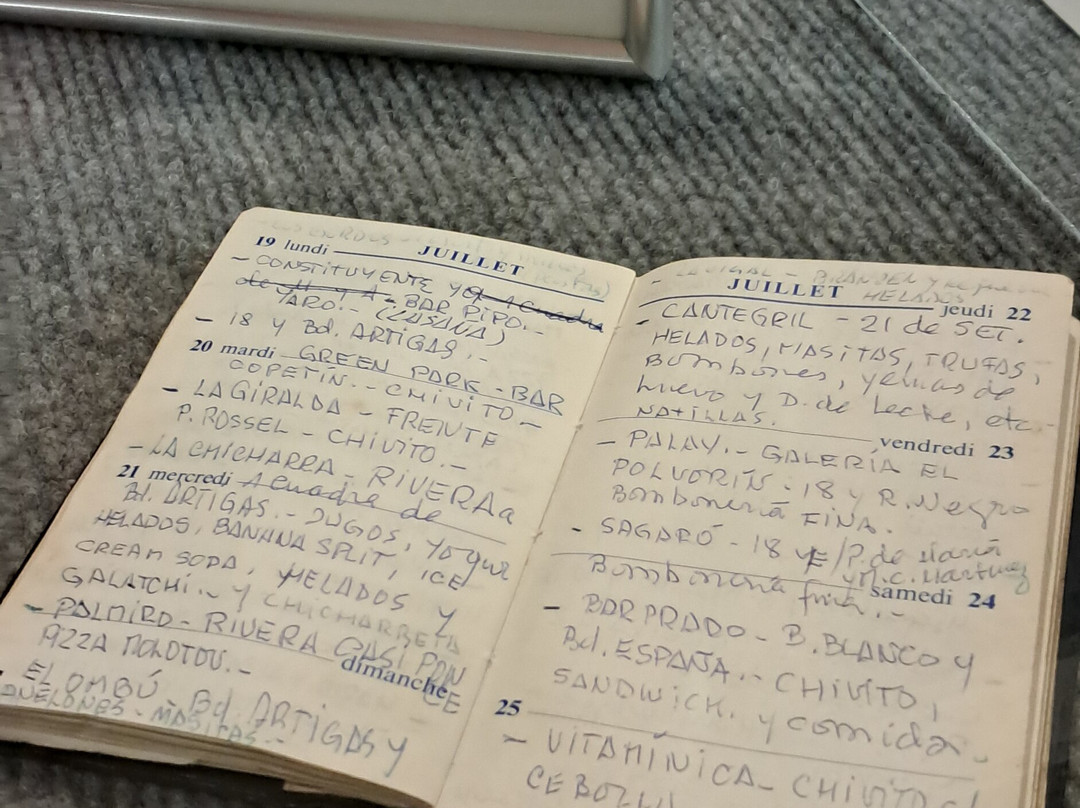 19 lundi JUILLET
- CONSTITUYENTE Y
YARO.- BAR PIPO.-
(SUSANA)
- 18 Y Bd. ARTIGAS.-
20 mardi GREEN PARK - BAR
COPETÍN.- CHIVITO.-
- LA GIRALDA - FRENTE
P. ROSSEL - CHIVITO.-
- LA CHICHARRA - RIVERA a
21 mercredi 1 cuadra de
Bd. ARTIGAS.- JUGOS, YOGUR
HELADOS, BANANA SPLIT, ICE
CREAM SODA, HELADOS Y
Y
- PALMIRO - RIVERA CASI PON
CE
PIZZA
dimanche
- EL OMBÚ - Bd. ARTIGAS Y
MASITAS.-
JUILLET
HELADOS
jeudi 22
- CANTEGRIL - 21 de SET.
HELADOS, MASITAS, TRUFAS,
Bombones, yemas de
huevo y D. de Leche, etc.-
NATILLAS.
vendredi 23
- PALAY.- GALERÍA EL
POLVORÍN - 18 y R. Negro
Bombonería FINA.
- SAGARÓ - 18 E/P. de María
y M.C. Martínez
Bombonería fina.-
samedi 24
- BAR PRADO - B. BLANCO y
Bd. ESPAÑA.- CHIVITO,
SANDWICH. y comida.
25
- VITAMÍNICA - CHIVITO